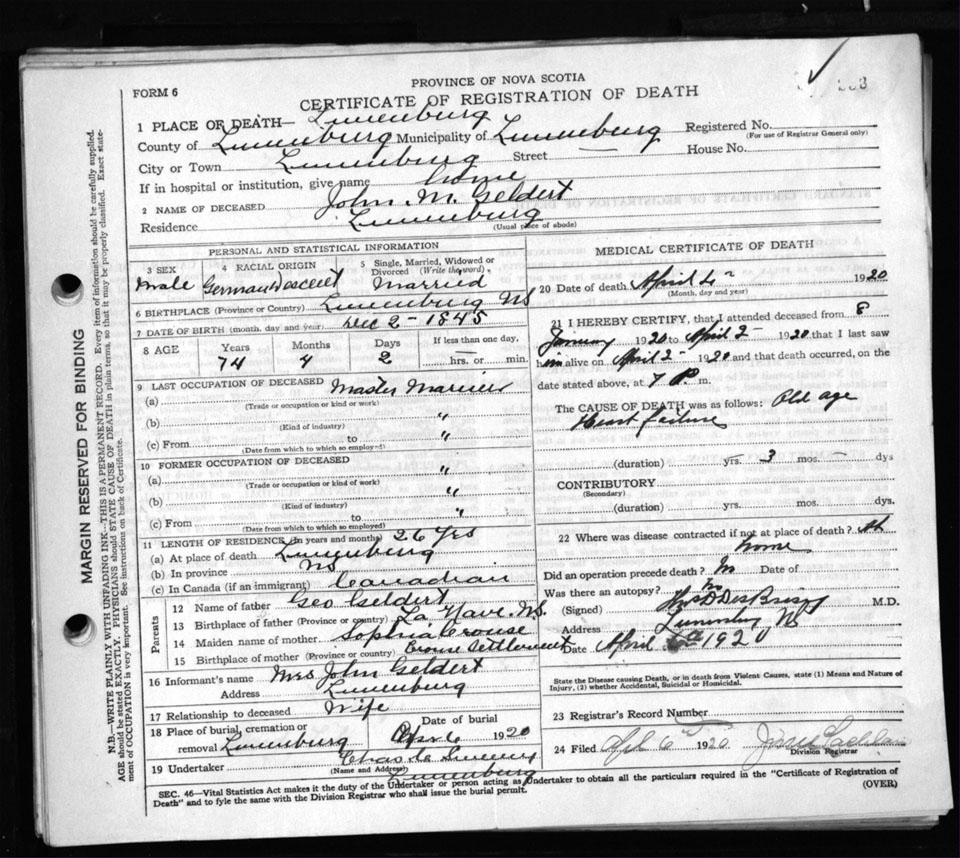 FORM 6
PROVINCE OF NOVA SCOTIA
CERTIFICATE OF REGISTRATION OF DEATH
1 PLACE OF DEATH— Lunenburg
County of Lunenburg Municipality of Lunenburg Registered No.
(For use of Registrar General only)
City or Town Lunenburg Street — House No.
If in hospital or institution, give name home
2 NAME OF DECEASED John M. Geldert
Residence Lunenburg
(Usual place of abode)
PERSONAL AND STATISTICAL INFORMATION
3 SEX 4 RACIAL ORIGIN 5 Single, Married, Widowed or Divorced (Write the word)
Male German Descent Married
6 BIRTHPLACE (Province or Country) Lunenburg NS
7 DATE OF BIRTH (month, day and year) Dec 2 - 1845
8 AGE Years Months Days If less than one day,
74 4 2 hrs. or min.
9 LAST OCCUPATION OF DECEASED Master Mariner
(a)
(Trade or occupation or kind or work)
(b) "
(Kind of industry)
(c) From to "
(Date from which to which so employed)
10 FORMER OCCUPATION OF DECEASED
(a) "
(Trade or occupation or kind of work)
(b) "
(Kind of industry)
(c) From to "
(Date from which to which so employed)
11 LENGTH OF RESIDENCE (In years and months) 26 Yrs
(a) At place of death Lunenburg
(b) In province NS
(c) In Canada (if an immigrant) Canadian
Parents
12 Name of father Geo Geldert
13 Birthplace of father (Province or country) La Have N.S.
14 Maiden name of mother Sophia Crouse
15 Birthplace of mother (Province or country) Crouse Settlement
16 Informant's name Mrs John Geldert
Address Lunenburg
17 Relationship to deceased Wife
18 Place of burial, cremation or removal Lunenburg Date of burial 6 1920
19 Undertaker Chas
(Name and Address)
Lunenburg
MEDICAL CERTIFICATE OF DEATH
20 Date of death April 1920
(Month, day and year)
21 I HEREBY CERTIFY, that I attended deceased from 8
January 1920 to April 2 - 1920 that I last saw
him alive on April 2 - 1920 and that death occurred, on the
date stated above, at 7 P. m.
The CAUSE OF DEATH was as follows: Old age
Heart failure
(duration) yrs. 3 mos. — dys
CONTRIBUTORY
(Secondary)
(duration) yrs. mos. dys.
22 Where was disease contracted if not at place of death? At
home
Did an operation precede death? No Date of
Was there an autopsy? No
(Signed) DesBrisay M.D.
Address Lunenburg NS
Date April 1920
State the Disease causing Death, or in death from Violent Causes, state (1) Means and Nature of
Injury, (2) whether Accidental, Suicidal or Homicidal.
23 Registrar's Record Number
24 Filed Apl 6 1920
Division Registrar
SEC. 46—Vital Statistics Act makes it the duty of the Undertaker or person acting as Undertaker to obtain all the particulars required in the "Certificate of Registration of
Death" and to fyle the same with the Division Registrar who shall issue the burial permit.
(OVER)
MARGIN RESERVED FOR BINDING
N.B.—WRITE PLAINLY WITH UNFADING INK—THIS IS A PERMANENT RECORD. Every item of information should be carefully supplied.
AGE should be stated EXACTLY. PHYSICIANS should STATE CAUSE OF DEATH in plain terms, so that it may be properly classified. Exact statement of OCCUPATION is very important. See instructions on back of Certificate.